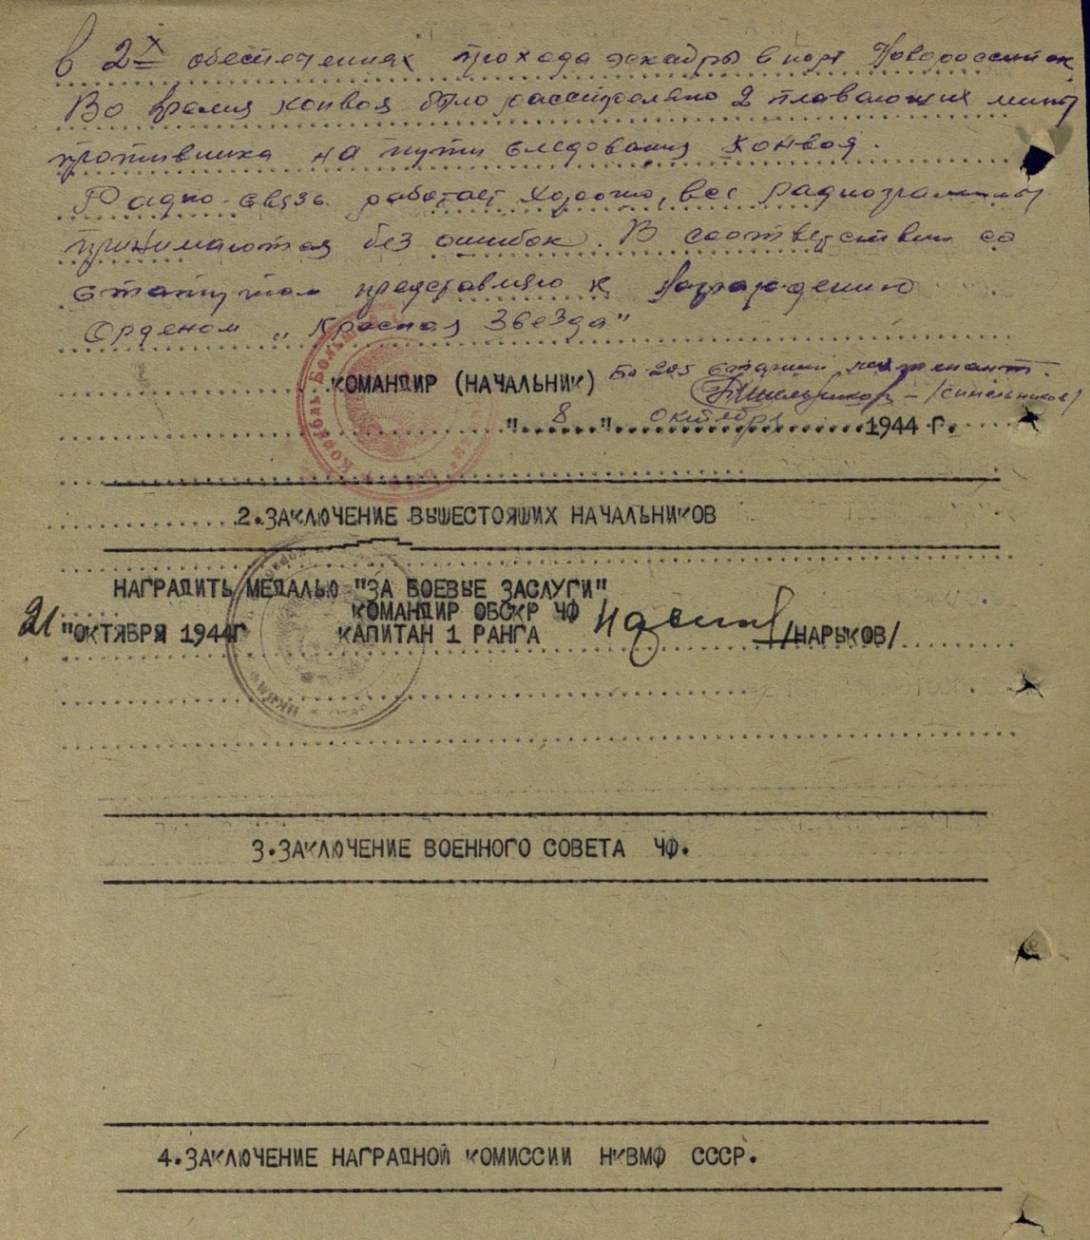 в 2х обеспечениях прохода эскадры в порт Новороссийск.
Во время конвоя было расстреляно 2 плавающих мины
противника на пути следования конвоя.
Радио-связь работает хорошо, все радиограммы
принимаются без ошибок. В соответствии со
статутом представляю к награждению
Орденом „Красная Звезда"
КОМАНДИР (НАЧАЛЬНИК) БО-205 старший лейтенант.
/Синельников/
"8" октября 1944 г.
2.ЗАКЛЮЧЕНИЕ ВЫШЕСТОЯШИХ НАЧАЛЬНИКОВ
НАГРАДИТЬ МЕДАЛЬЮ "ЗА БОЕВЫЕ ЗАСЛУГИ"
КОМАНДИР ОБСКР ЧФ
21 "ОКТЯБРЯ 1944Г КАПИТАН 1 РАНГА /НАРЫКОВ/
3.ЗАКЛЮЧЕНИЕ ВОЕННОГО СОВЕТА ЧФ.
4.ЗАКЛЮЧЕНИЕ НАГРАДНОЙ КОМИССИИ НКВМФ СССР.